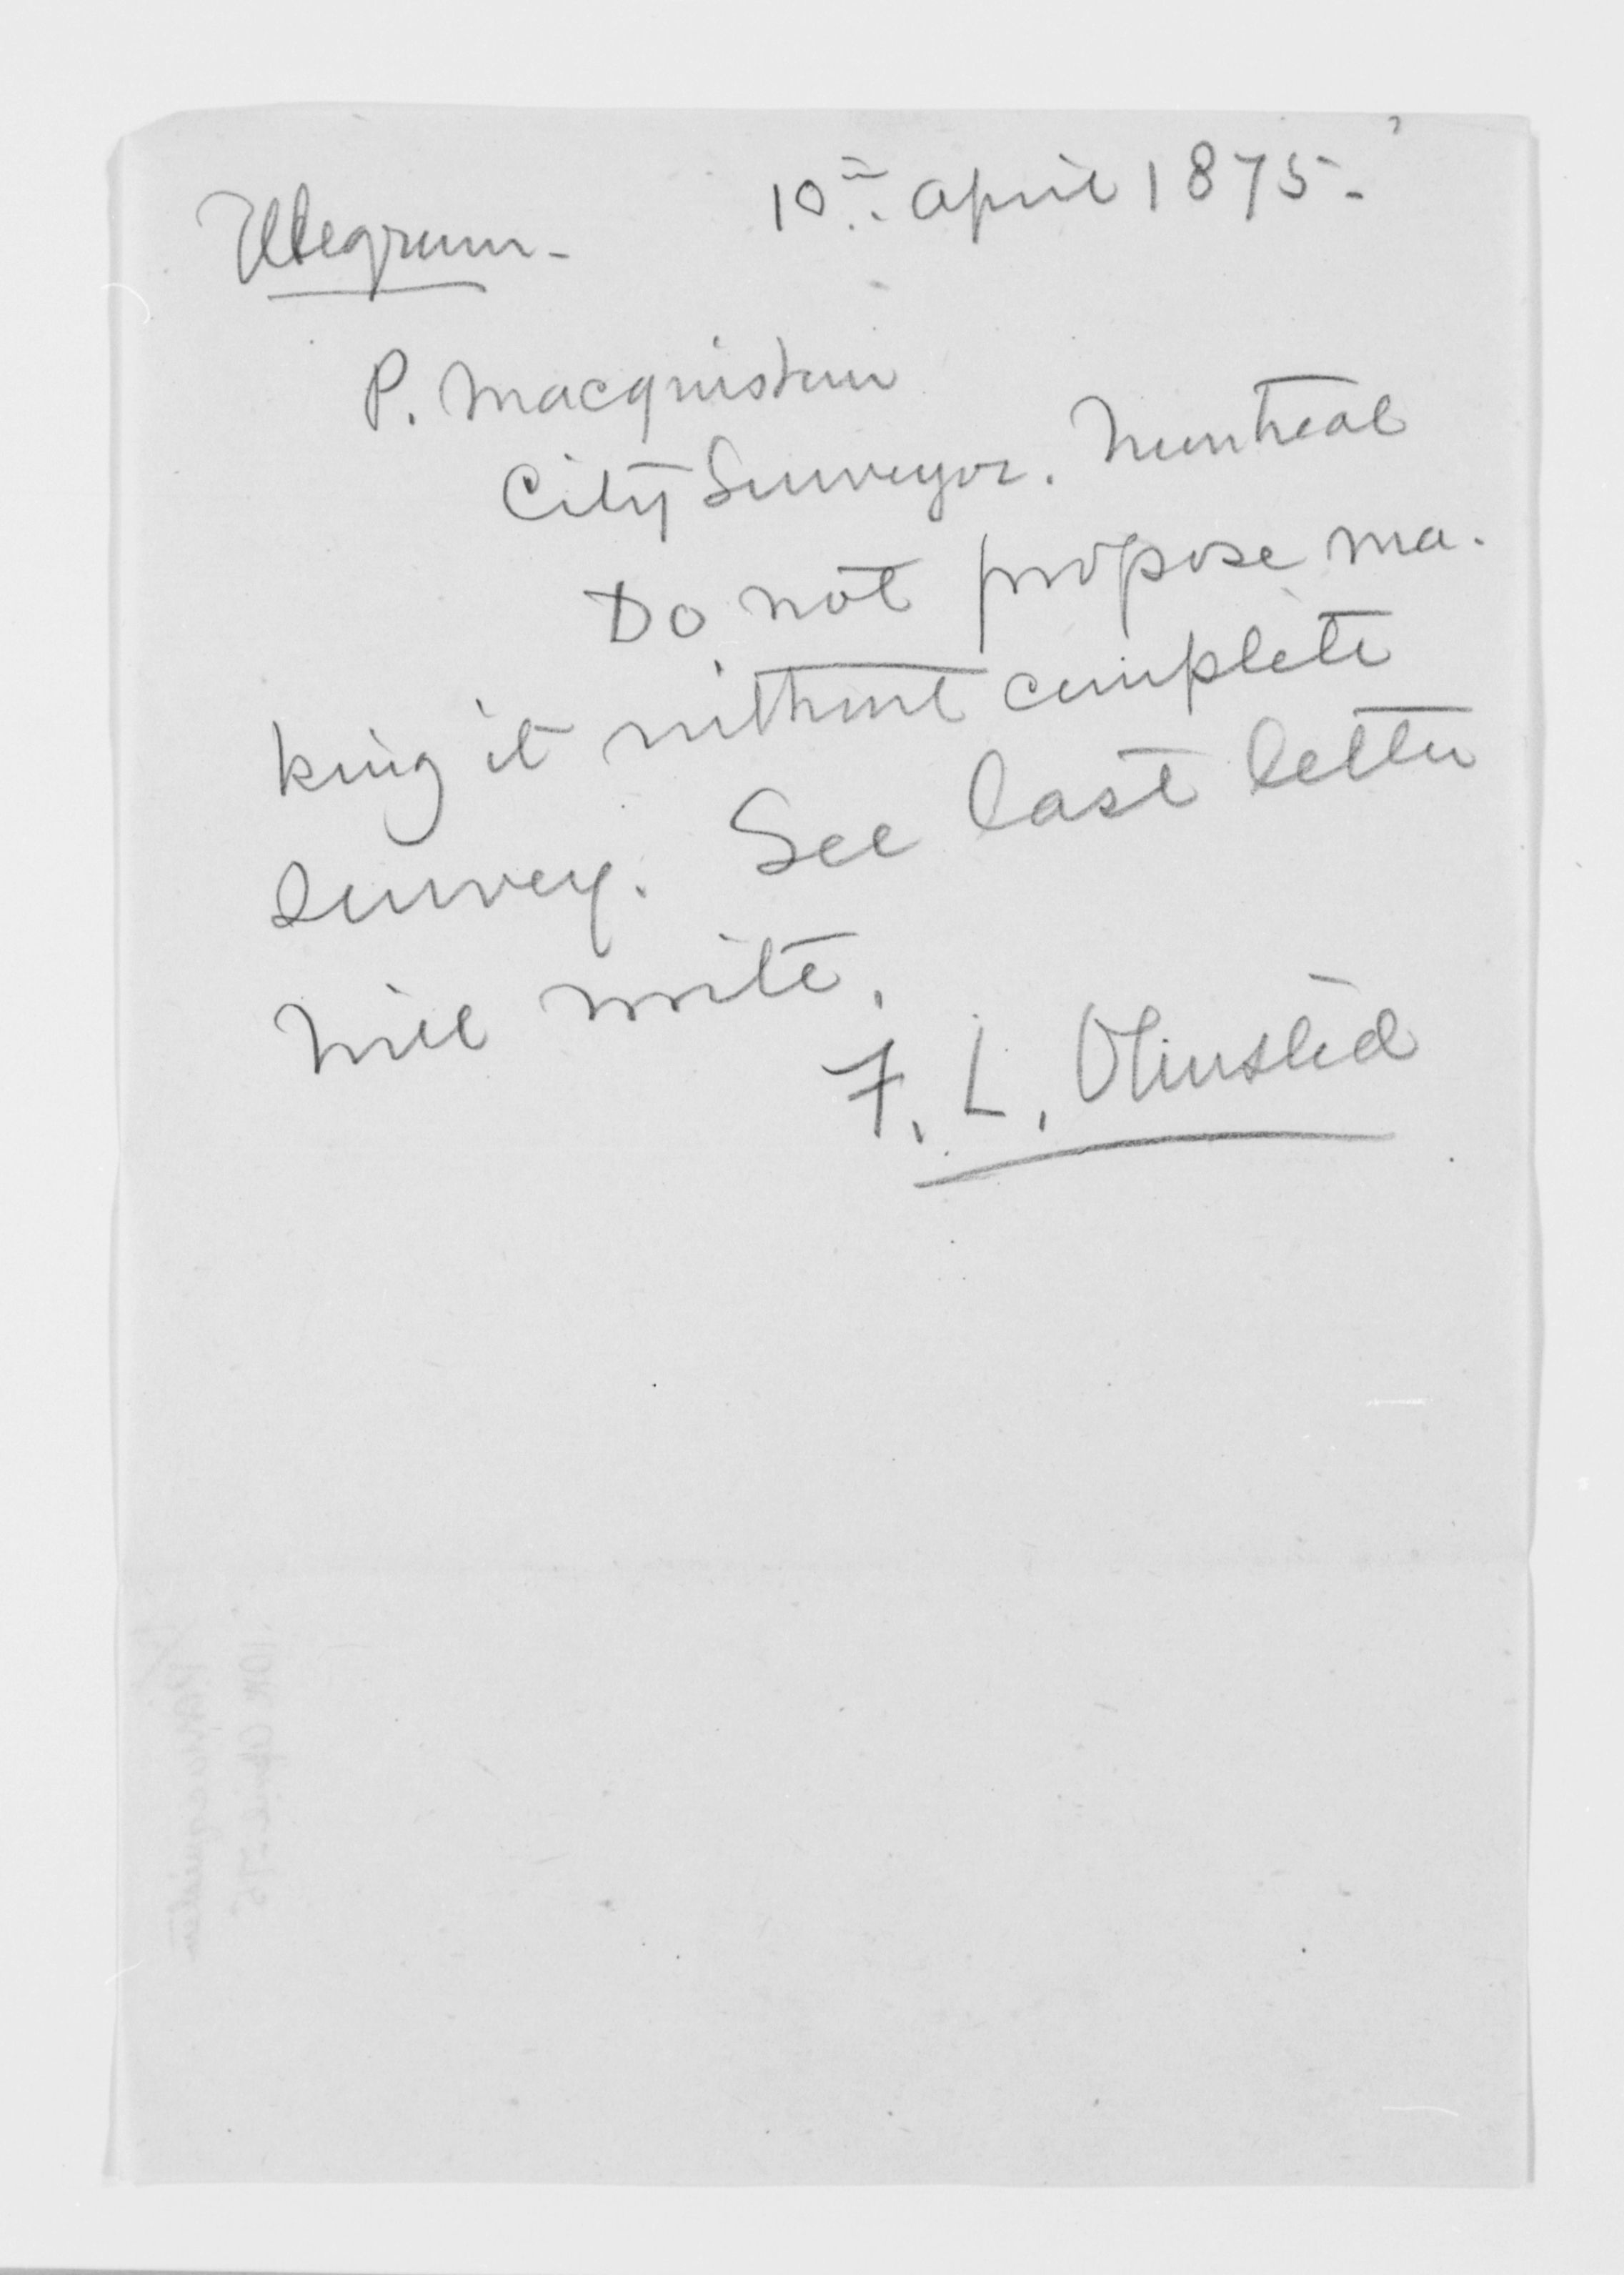 10th April 1875.
Telegram.
P. Macquisten
City Surveyor. Montreal
Do not propose ma-
king it without complete
survey. See last letter
Will write.
F. L. Olmsted
10th April 75
P. Macquisten